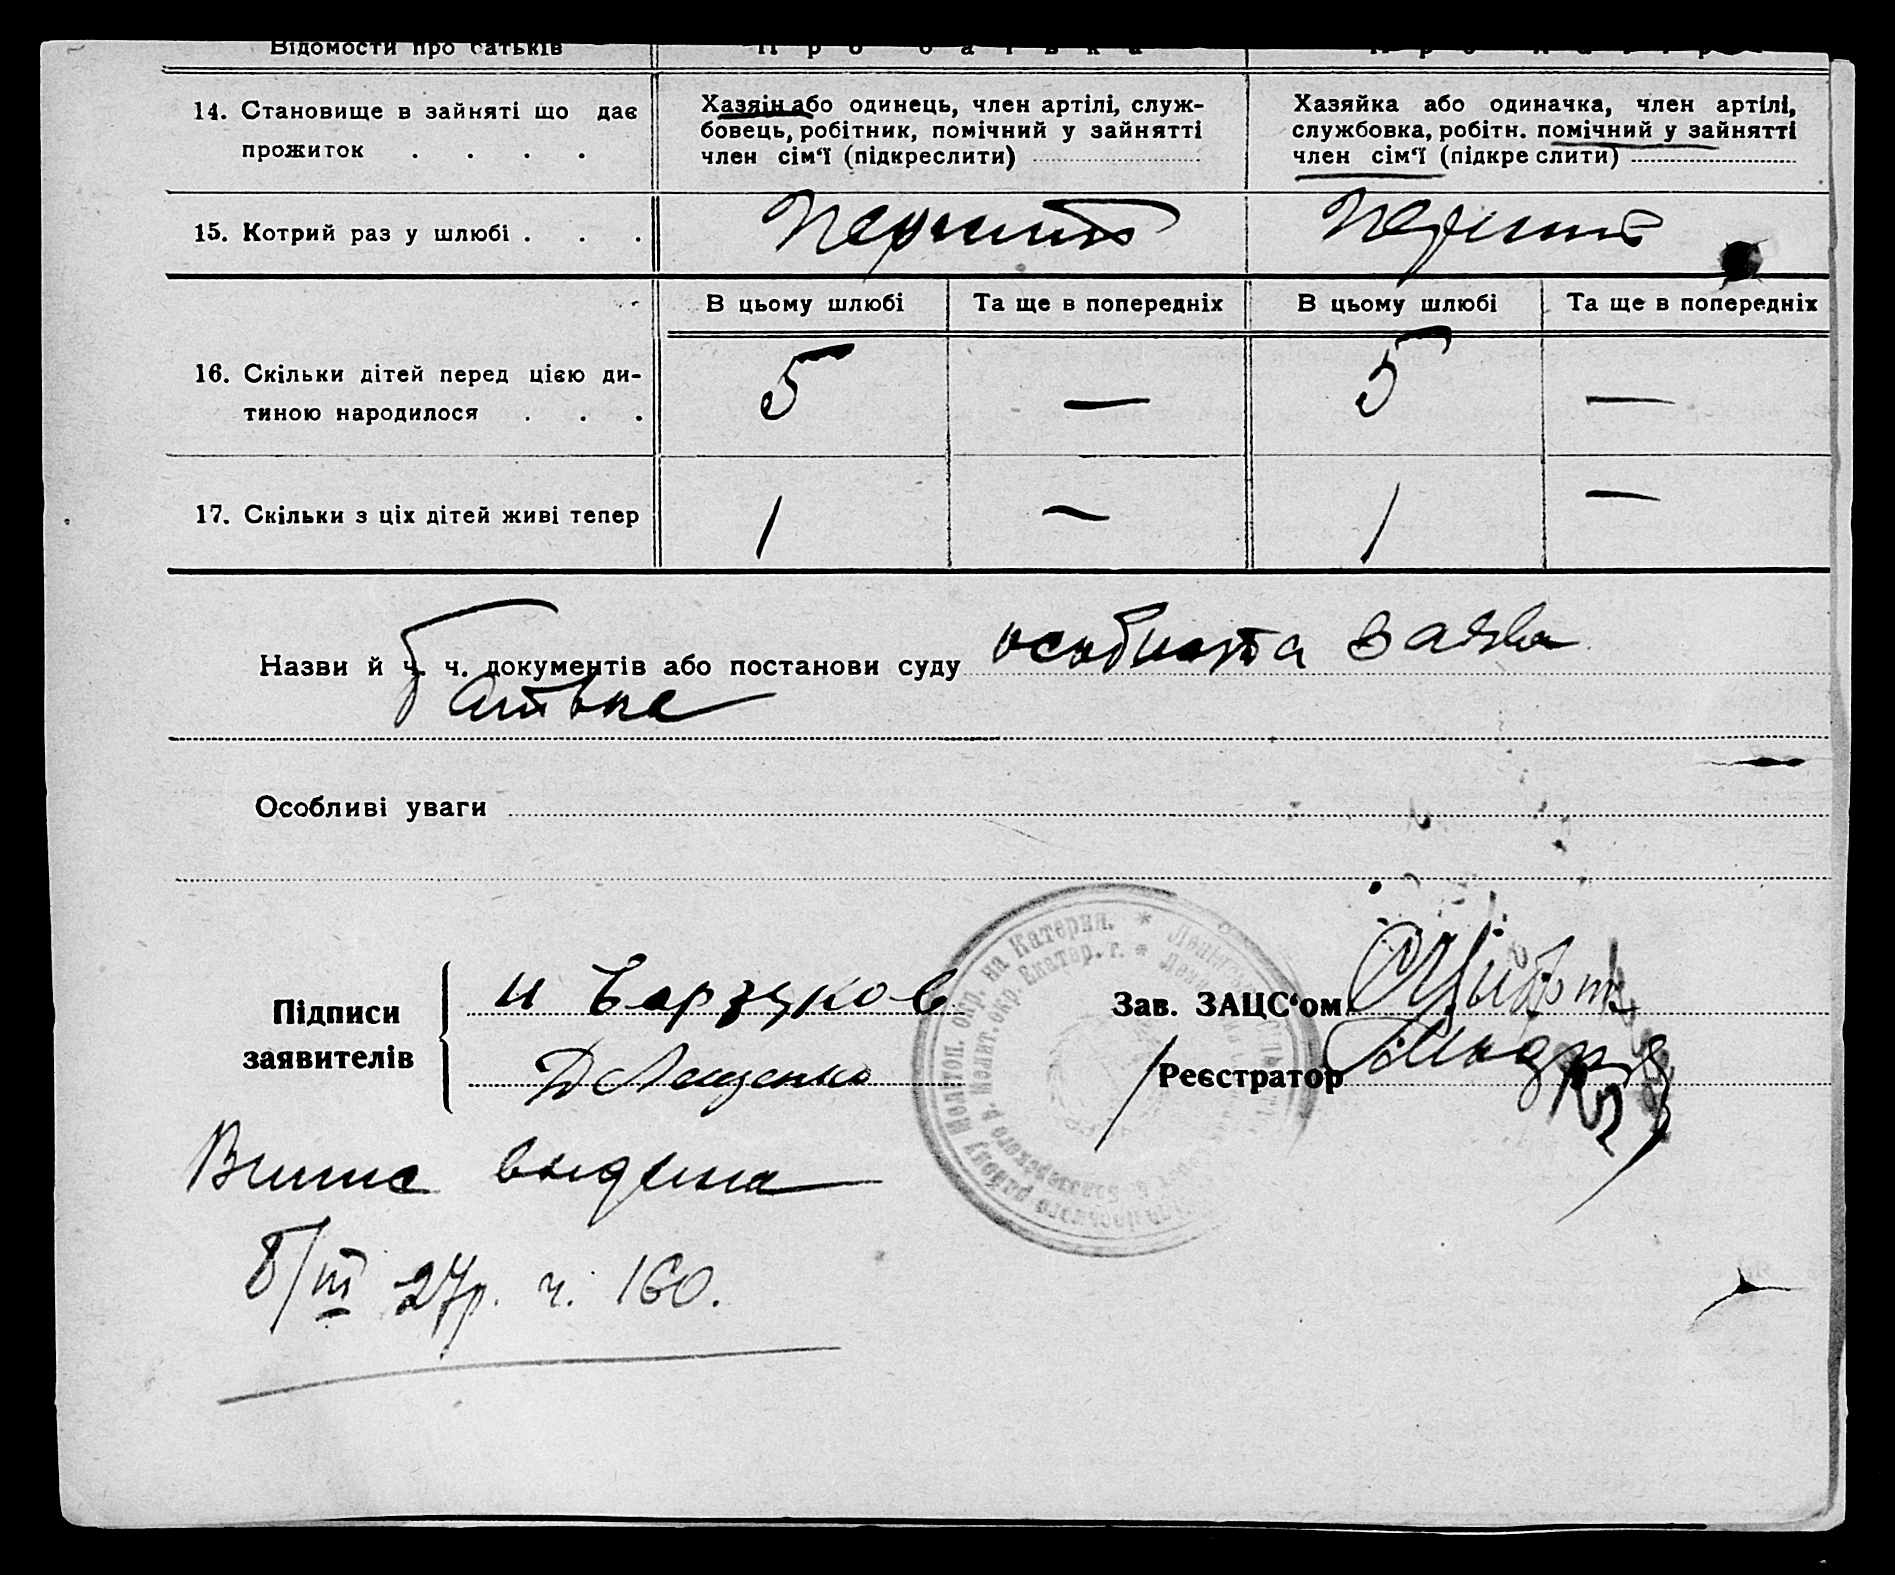 Відомости про батьків
Про батька
Про матір
14. Становище в зайняті що дає
прожиток . . . .
Хазяїн або одинець, член артілі, служ-
бовець, робітник, помічний у зайнятті
член сім'ї (підкреслити)
Хазяйка або одиначка, член артілі,
службовка, робітн. помічний у зайнятті
член сім'ї (підкреслити)
15. Котрий раз у шлюбі . . .
Перший
Перший
В цьому шлюбі
Та ще в попередніх
В цьому шлюбі
Та ще в попередніх
16. Скільки дітей перед цією ди-
тиною народилося . . .
5 — 5 —
17. Скільки з ціх дітей живі тепер
1 — 1 —
Назви й ч. ч. документів або постанови суду особиста заява
батька
Особливі уваги
Підписи
заявителів
Д Лещенко
Зав. ЗАЦС'ом
Реєстратор
Випис видана
8/III 27р. ч. 160.